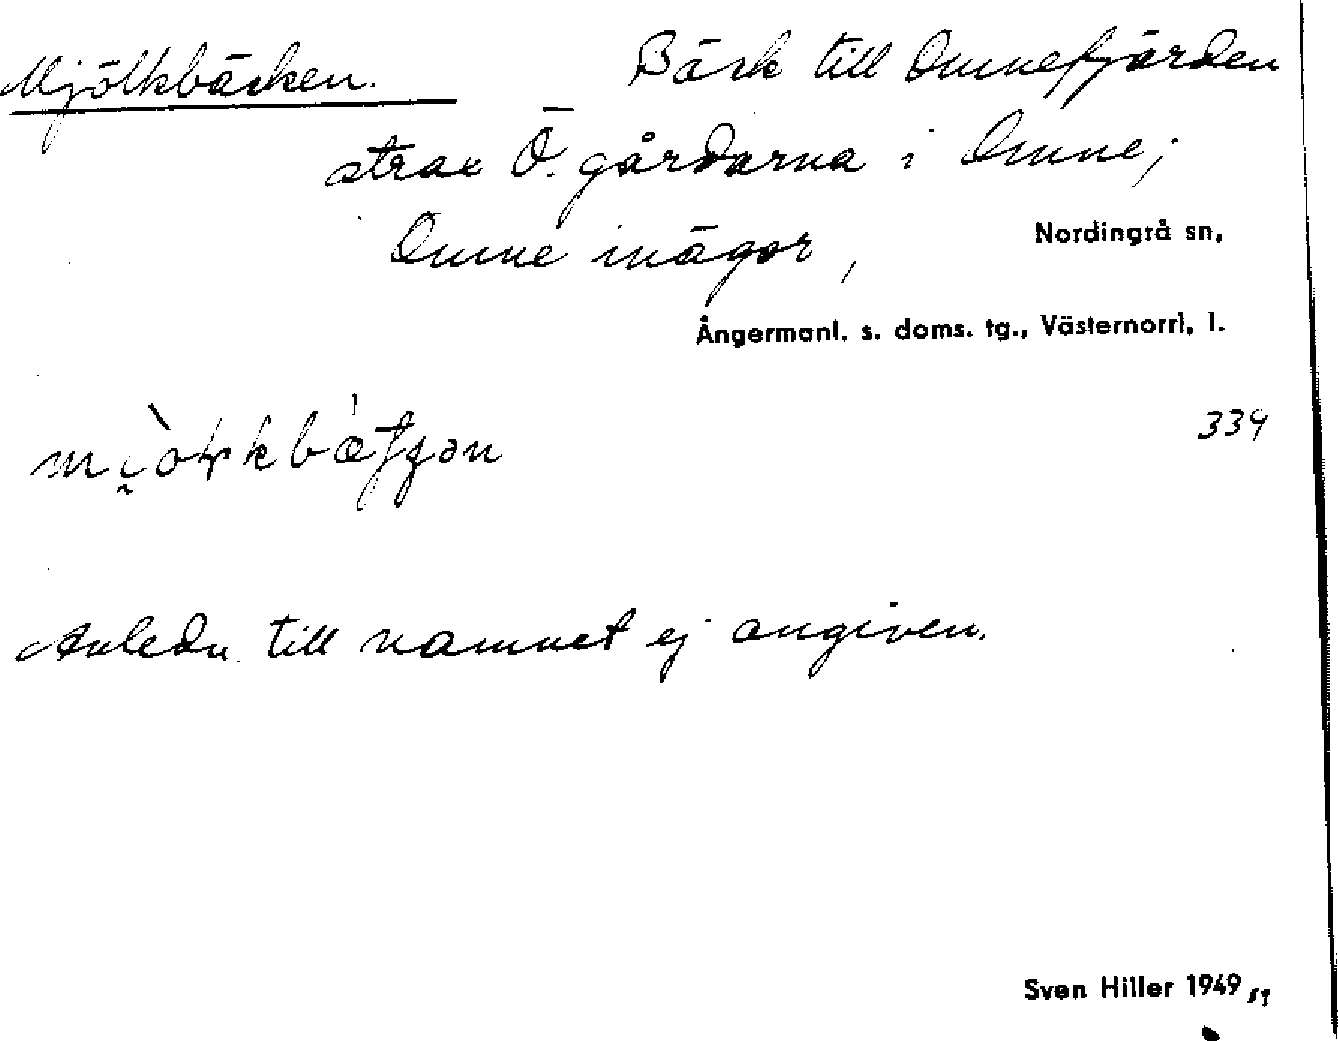 Mjölkbäcken. Bäck till Omnefjärden
strax Ö. gårdarna i Omne;
Omne inägor,
Nordingrå sn,
Ångermanl. s. doms. tg., Västernorrl. l.
339
Anledn. till namnet ej angiven.
Sven Hiller 1949